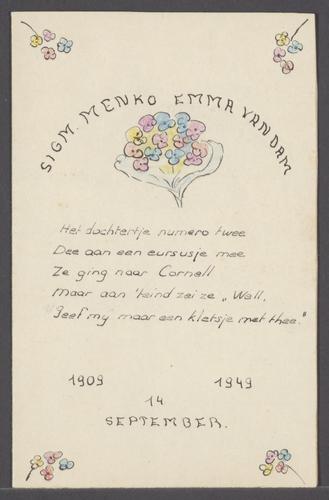 SIGM. MENKO EMMA VAN DAM
Het dochtertje numero twee
Dee aan een cursusje mee
Ze ging naar Cornell
Maar aan 'teind zei ze „Well,
"Geef mij maar een kletsje met thee."
1909 1949
14
SEPTEMBER.